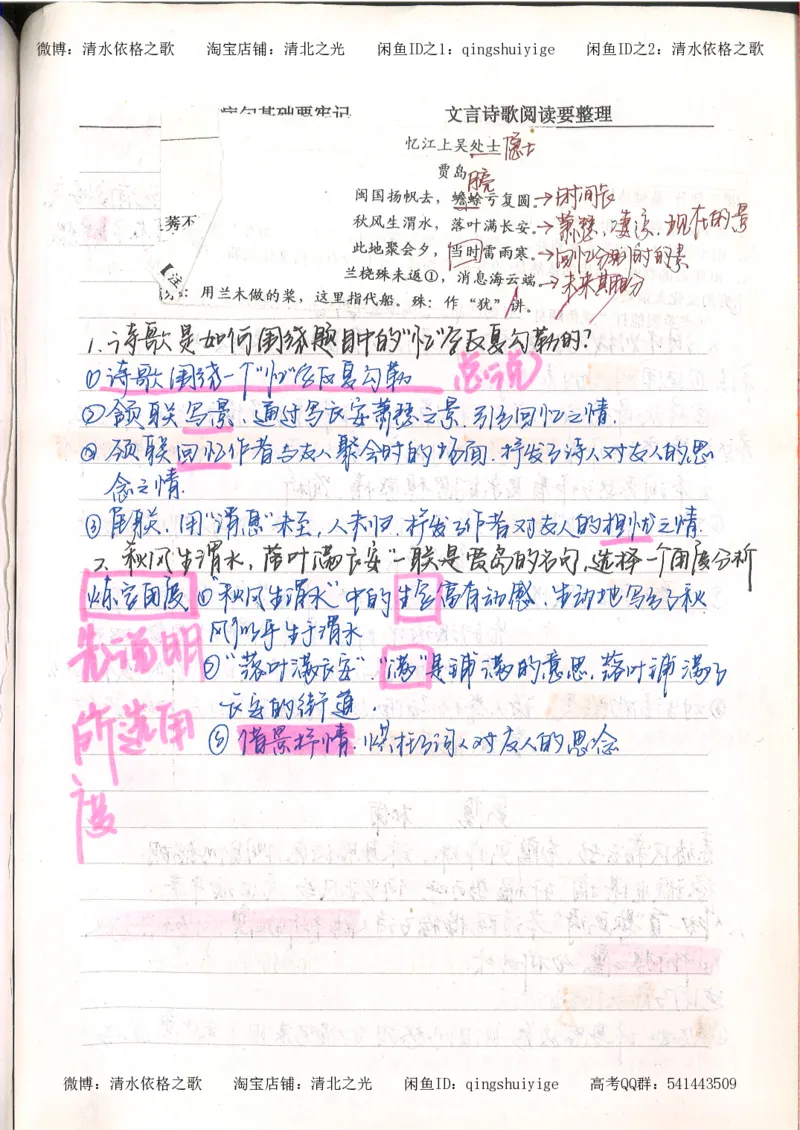 微博：清水依格之歌 淘宝店铺：清北之光 闲鱼ID之1：qingshuiyige 闲鱼ID之2：清水依格之歌
病句基础要牢记 文言诗歌阅读要整理
忆江上吴处士 隐士
贾岛
月亮
闽国扬帆去，蟾蜍亏复圆。→时间长
秋风生渭水，落叶满长安。→萧瑟、凄凉、现在的景
此地聚会夕，当时雷雨寒。→回忆分别时的景
兰桡殊未返①，消息海云端。→未来期盼
莠不
【注
：用兰木做的桨，这里指代船。殊：作“犹”讲。
1.诗歌是如何围绕题目中的“忆”字反复勾勒的？
①诗歌围绕一个“忆”字反复勾勒 总说
②颔联写景，通过写长安萧瑟之景，引出回忆之情.
③颈联回忆作者与友人聚会时的场面.抒发了诗人对友人的思
念之情.
④尾联，用“消息”未至，人未归，抒发了作者对友人的担忧之情.
2.秋风生渭水，落叶满长安”一联是贾岛的名句，选择一个角度分析
炼字角度 ①“秋风生渭水”中的生字富有动感.生动地写出了秋
风似乎生于渭水
先说明所选角度
②“落叶满长安”.“满”是铺满的意思.落叶铺满了
长安的街道.
③借景抒情.烘托了词人对友人的思念
微博：清水依格之歌 淘宝店铺：清北之光 闲鱼ID：qingshuiyige 高考QQ群：541443509